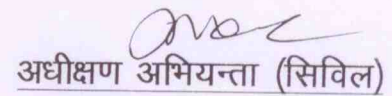 अधीक्षण अभियन्ता (सिविल)